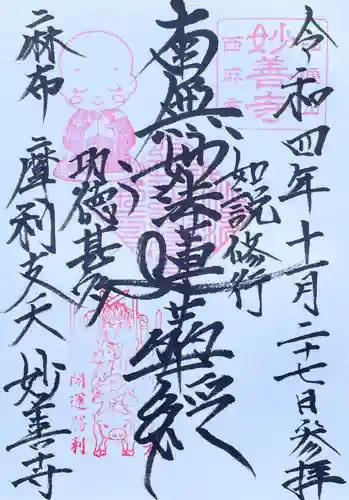 令和四年十一月二十七日参拝
如説修行
南無妙法蓮華経
功徳甚多
麻布 摩利支天 妙善寺
西麻布
妙善寺
開運勝利